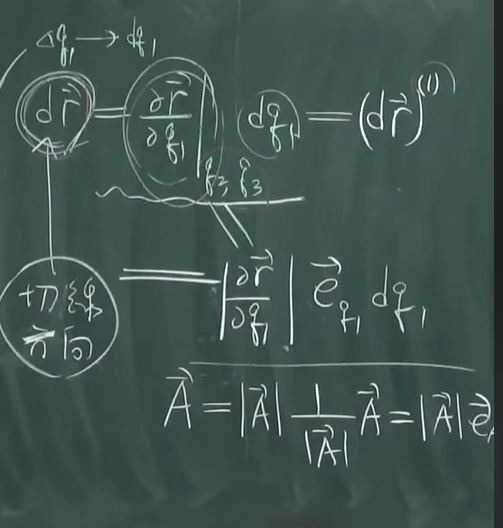 Δq₁ → dq₁
dr⃗ = ∂r⃗/∂q₁ |q₂, q₃ dq₁ = (dr⃗)⁽¹⁾
切線
方向
= |∂r⃗/∂q₁| e⃗q₁ dq₁
A⃗ = |A⃗| 1/|A⃗| A⃗ = |A⃗| e⃗